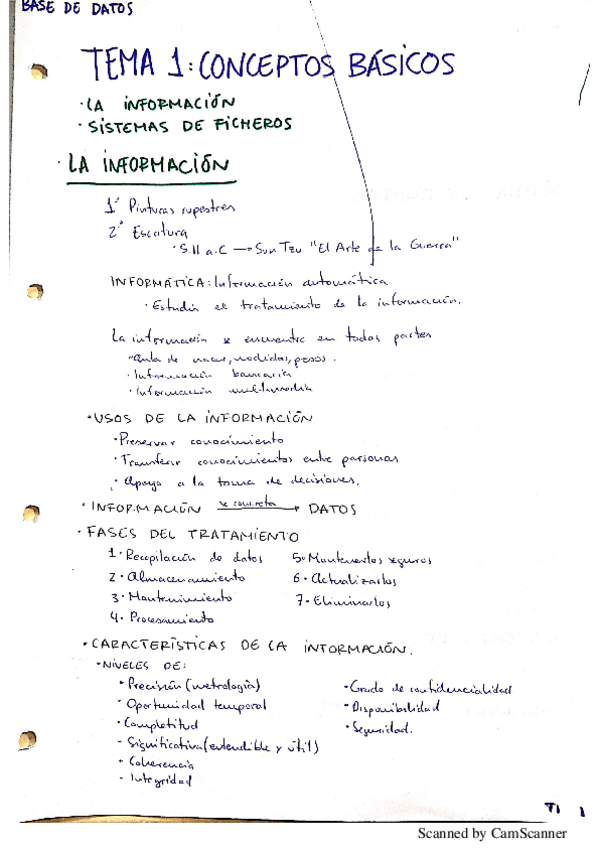 BASE DE DATOS
TEMA 1: CONCEPTOS BÁSICOS
· LA INFORMACIÓN
· SISTEMAS DE FICHEROS
· LA INFORMACIÓN
1º Pinturas rupestres
2º Escritura
· S.II a.C → Sun Tzu "El Arte de la Guerra"
INFORMÁTICA: Información automática
· Estudia el tratamiento de la información.
La información se encuentra en todas partes
medidas, pesos.
· Información bancaria
· Información multimedia
· USOS DE LA INFORMACIÓN
· Preservar conocimiento
· Transferir conocimientos entre personas
· Apoyo a la toma de decisiones.
· INFORMACIÓN se concreta → DATOS
· FASES DEL TRATAMIENTO
1· Recopilación de datos
2· Almacenamiento
3· Mantenimiento
4· Procesamiento
5· Mantenerlos seguros
6· Actualizarlos
7· Eliminarlos
· CARACTERÍSTICAS DE LA INFORMACIÓN.
· NIVELES DE:
· Precisión (metrología)
· Oportunidad temporal
· Completitud
· Significativa (entendible y útil)
· Coherencia
· Integridad
· Grado de confidencialidad
· Disponibilidad
· Seguridad.
T1 1
Scanned by CamScanner